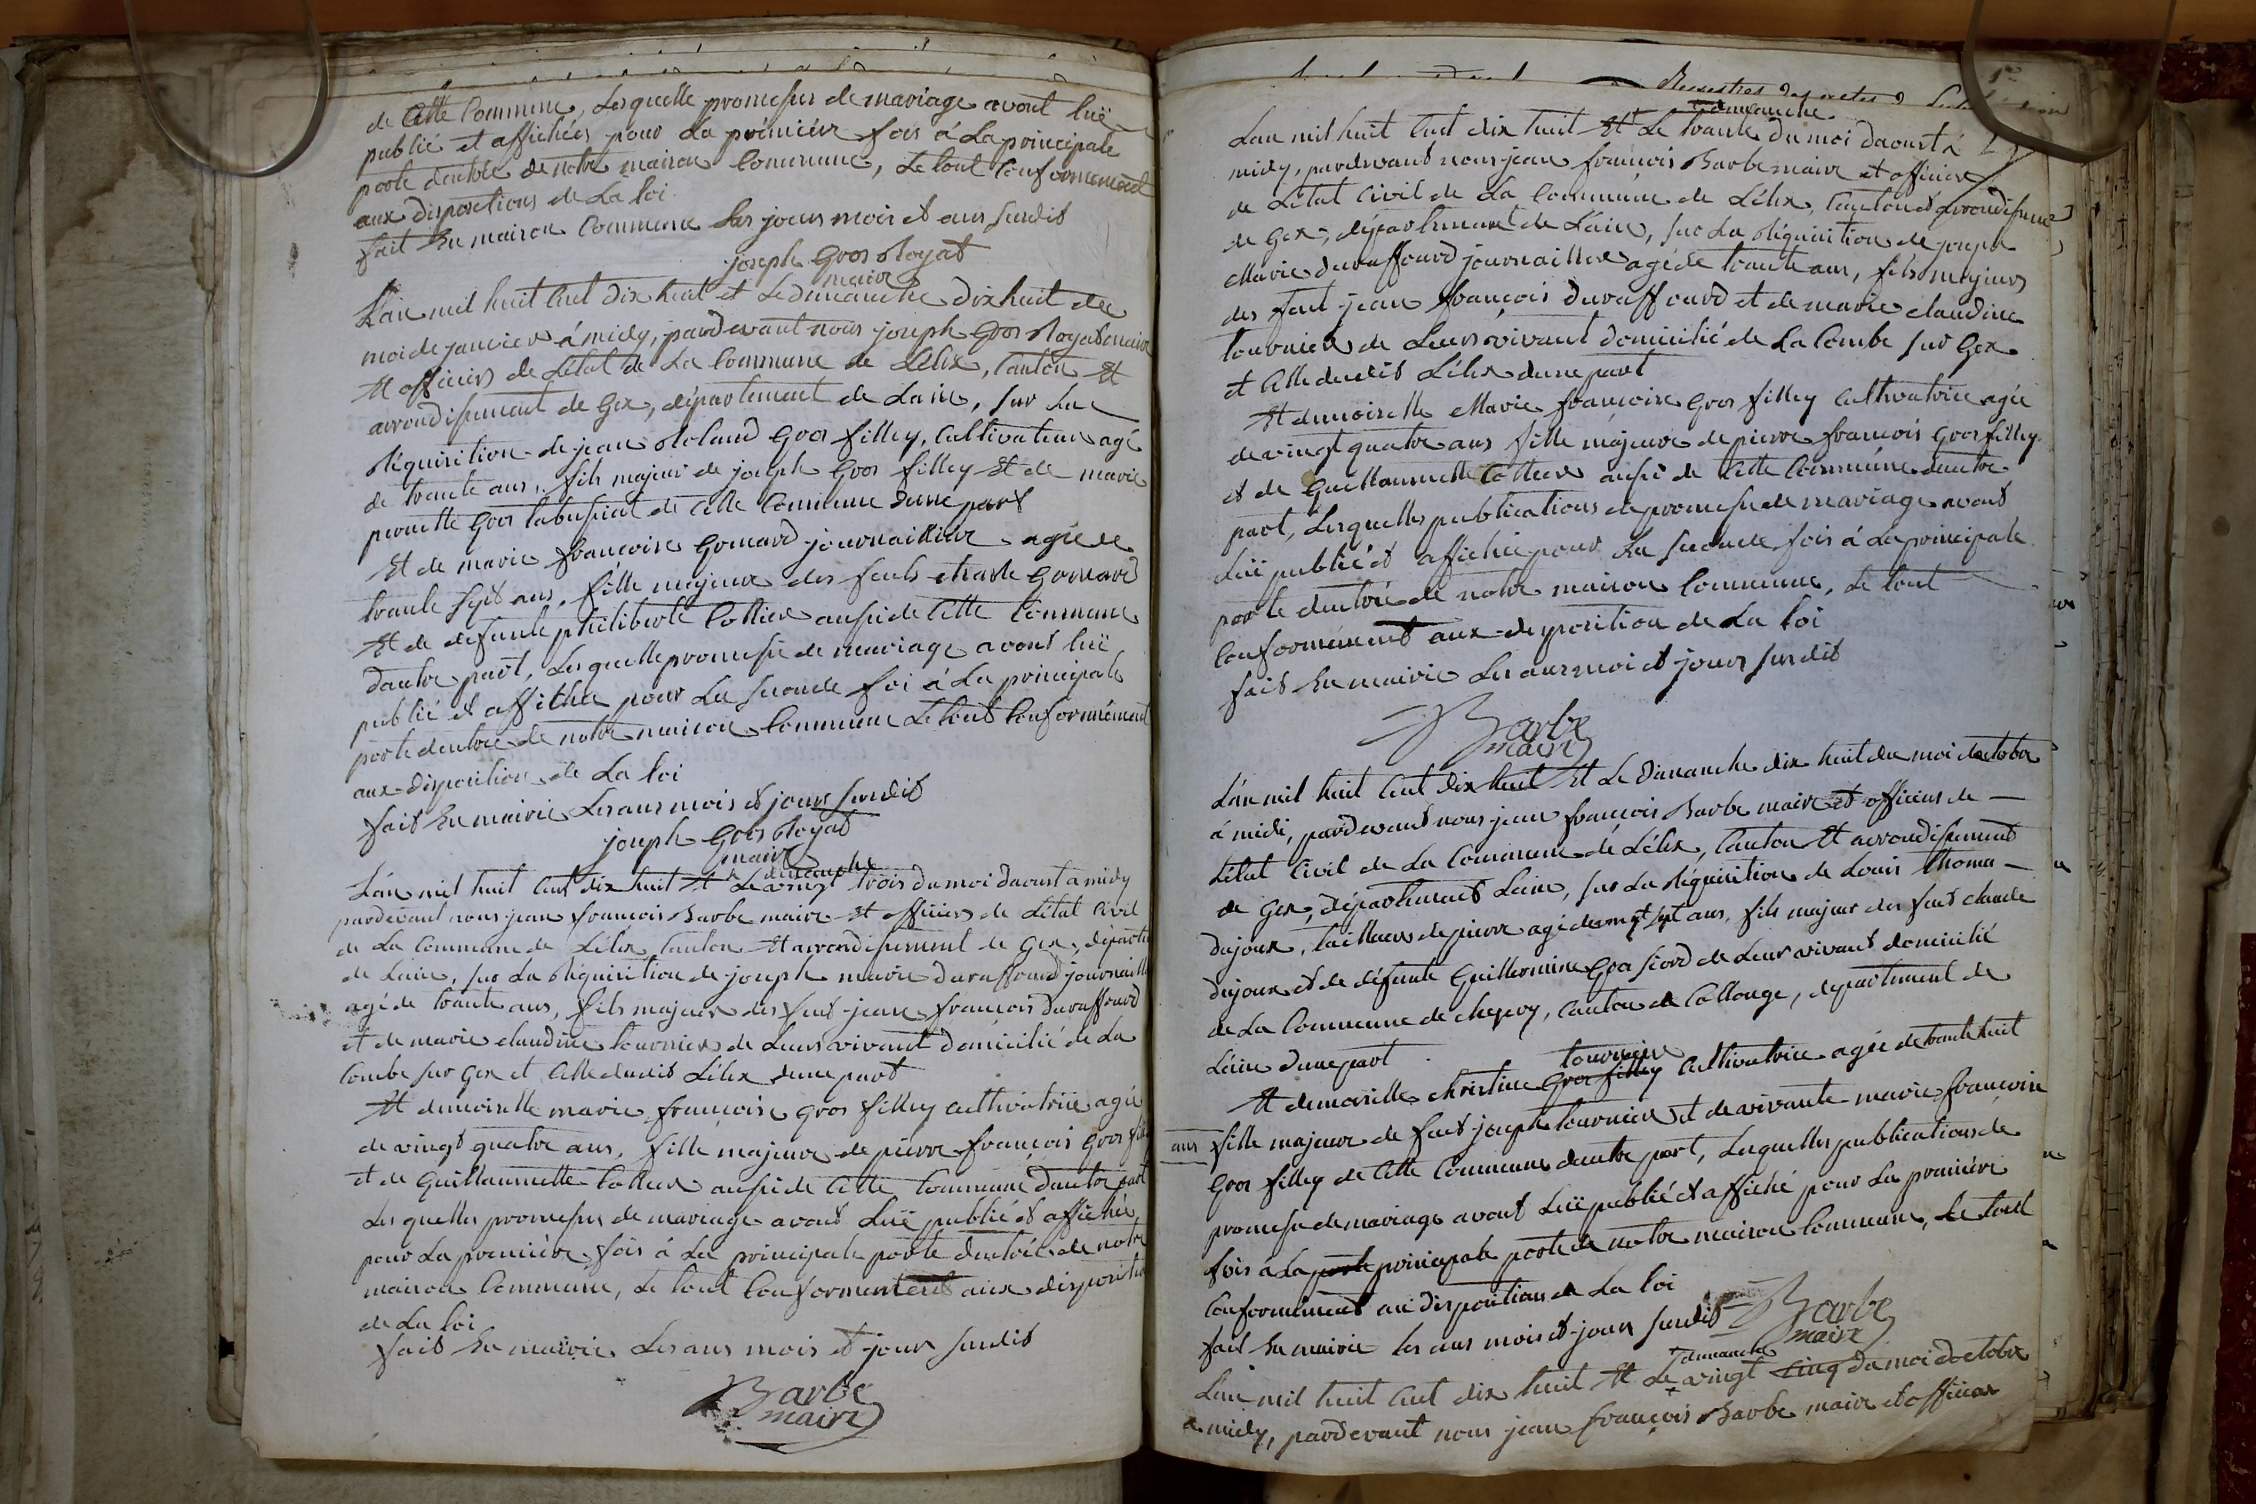 de Cette Commune, Lesquelle promesses de mariage avont luë
publié et affichées pour La première fois à La principale
porte dentrée de notre maison Commune, Le tout Conformement
aux dispositions de La loi
fait En maison Commune Les jours mois et ans susdit
joseph Gros Royat
maire
L'an mil huit Cent dix huit et Le dimanche dix huit de
moi de janvier à midy, pardevant nous joseph Gros Royat maire
Et officiers de L'état de La Commune de Lélex, Canton Et
arrondissement de Gex, département de Lain, sur La
Réquisition de jean Roland Gros filley, Cultivateur agé
de trante ans, fils majeur de joseph Gros filley Et de marie
pernette Gros de Cette Commune dune part
Et de marie françoise Gomard journaillier agée de
trante sept ans, fille majeure des feuts Gomard
Et de defunte philiberte Cottier aussi de Cette Commune
dautre part, Lesquelle promesse de mariage avont luë
publié et affiché pour La seconde foi à La principale
porte dentrée de notre maison Commune Le tout Conformément
aux disposition de La loi
fait En mairie Les ans mois et jours susdit
joseph Gros Royat
maire
dimanche
L'an mil huit Cent dix huit Et Le vingt trois du moi daoust a midy
pardevant nous jean françois Barbe maire Et officiers de L'état Civil
de La Commune de Lélex Canton Et arrondissement de Gex, départe
de Lain, sur La Réquisition de joseph marie Duraffourd journaill
agé de trante ans, fils majeur des feut jean françois Duraffourd
et de marie claudine tournier de Leurs vivant domicilié de La
Combe sur Gex et Cette dudit Lélex dune part
Et demoiselle marie françoise Gros filley Cultivatrice agée
de vingt quatre ans, fille majeure de pierre françois Gros
et de Guillaumette Cottier aussi de Cette Commune dautre part
Lesquelles promesses de mariage avont Luë publié et affichée
pour La première fois à La principale porte dentrée de notre
maison Commune, Le tout Conformement aux disposition
de La loi
fait En mairie Les ans mois et jour susdit
Barbe
maire
Registres des actes de
dimanche
L'an mil huit Cent dix huit Et Le trante du moi daoust à
midy, pardevant nous jean françois Barbe maire et officiers
de L'état Civil de La Commune de Lélex, Canton et arrondissement
de Gex, département de Lain, sur La Réquisition de joseph
Marie duraffourd journaillier agé de trante ans, fils majeur
des feut jean françois duraffourd et de marie claudine
tournier de Leurs vivant domicilié de La Combe sur Gex
et Cette dudit Lélex dune part
Et demoiselle Marie françoise Gros filley Cultivatrice agée
de vingt quatre ans fille majeure de pierre françois Gros filley
et de Guillaumette Cottier aussi de Cette Commune dautre
part, Lesquelles publications de promesse de mariage avont
Luë publié et affichée pour La seconde fois à La principale
porte dentrée de notre maison Commune, Le tout
Conformément aux disposition de La loi
fait En mairie Les ans moi et jour susdit
Barbe
maire
L'an mil huit Cent dix huit Et Le dimanche dix huit du moi doctobre
à midi, pardevant nous jean françois Barbe maire et officiers de
L'état Civil de La Commune de Lélex, Canton Et arrondissement
de Gex, département Lain, sur La Réquisition de Louis thoma
dujoux, tailleur de pierre agé de vingt sept ans, fils majeur des feut claude
dujoux et de défunte Guillermine de Leur vivant domicilié
de La Commune de chezery, Canton de Collonge, département de
Lain dune part
tournier
Et demoiselle christine Gros filley Cultivatrice agée de trante huit
ans fille majeure de feut joseph tournier et de vivante marie françoise
Gros filley de Cette Commune dautre part, Lesquelles publications de
promesse de mariage avont Luë publié et affiché pour La première
fois à La porte principale porte de notre maison Commune, Le tout
Conformément au disposition de La loi
fait En mairie les ans mois et jour susdit
Barbe
maire
dimanche
L'an mil huit Cent dix huit Et Le vingt cinq du moi doctobre
a midy, pardevant nous jean françois Barbe maire et officier